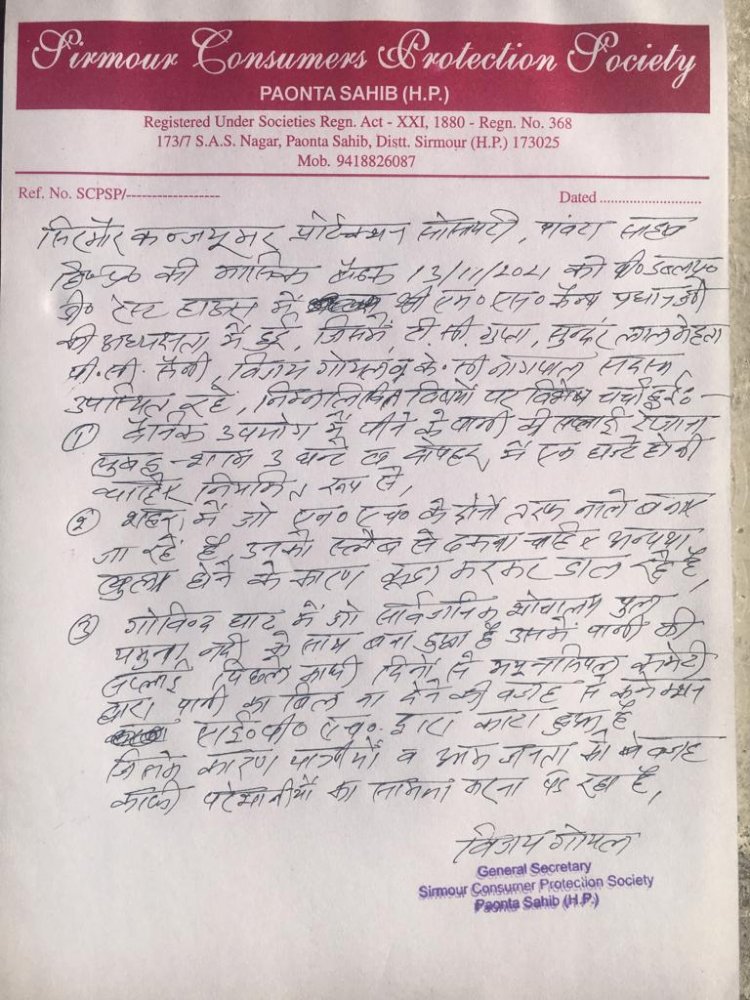 Sirmour Consumers Protection Society
PAONTA SAHIB (H.P.)
Registered Under Societies Regn. Act - XXI, 1880 - Regn. No. 368
173/7 S.A.S. Nagar, Paonta Sahib, Distt. Sirmour (H.P.) 173025
Mob. 9418826087
Ref. No. SCPSP/------------------
Dated ..........................
सिरमौर कन्जयूमर प्रोटेक्शन सोसायटी, पांवटा साहब
हि०प्र० की मासिक बैठक 13/11/2021 को पी०डब्लयू०
डी० रेस्ट हाउस में श्री एन०एस० कैम्थ प्रधान जी
की अध्यक्षता में हुई, जिसमें टी.सी. गुप्ता, सुन्दर लाल मेहता
पी.सी. सैनी, विजय गोयल व के.सी नागपाल सदस्य
उपस्थित रहे, निम्नलिखित विषयों पर विशेष चर्चा हुई:-
① दैनिक उपयोग में पीने के पानी की सप्लाई रोजाना
सुबह-शाम 3 घन्टे व दोपहर में एक घन्टे होनी
चाहिए नियमित रूप से,
② शहर में जो एन०एच० के दोनों तरफ नाले बनाए
जा रहें हैं उनको स्लैब से ढकना चाहिए अन्यथा
खुला होने के कारण कूड़ा करकट डाल रहे है,
③ गोविन्द घाट में जो सार्वजनिक शौचालय पुल
यमुना नदी के साथ बना हुआ है उसमें पानी की
सप्लाई पिछले काफी दिनों से म्यूनसिपल कमेटी
द्वारा पानी का बिल ना देने की वजह से कनेक्शन
आई०पी०एच०. द्वारा काटा हुआ है
जिसके कारण यात्रीयों व आम जनता को वजह
काफी परेशानीयों का सामना करना पड़ रहा है,
विजय गोयल
General Secretary
Sirmour Consumer Protection Society
Paonta Sahib (H.P.)